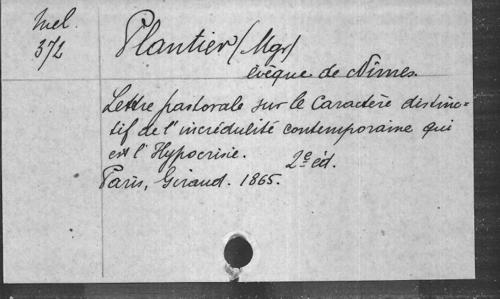 Mel.
372
Plantier (Mgr)
évêque de Nîmes.
Lettre pastorale sur le Caractère distinc=
tif de l'incrédulité contemporaine qui
est l'Hypocrisie. 2e éd.
Paris, Giraud. 1865.